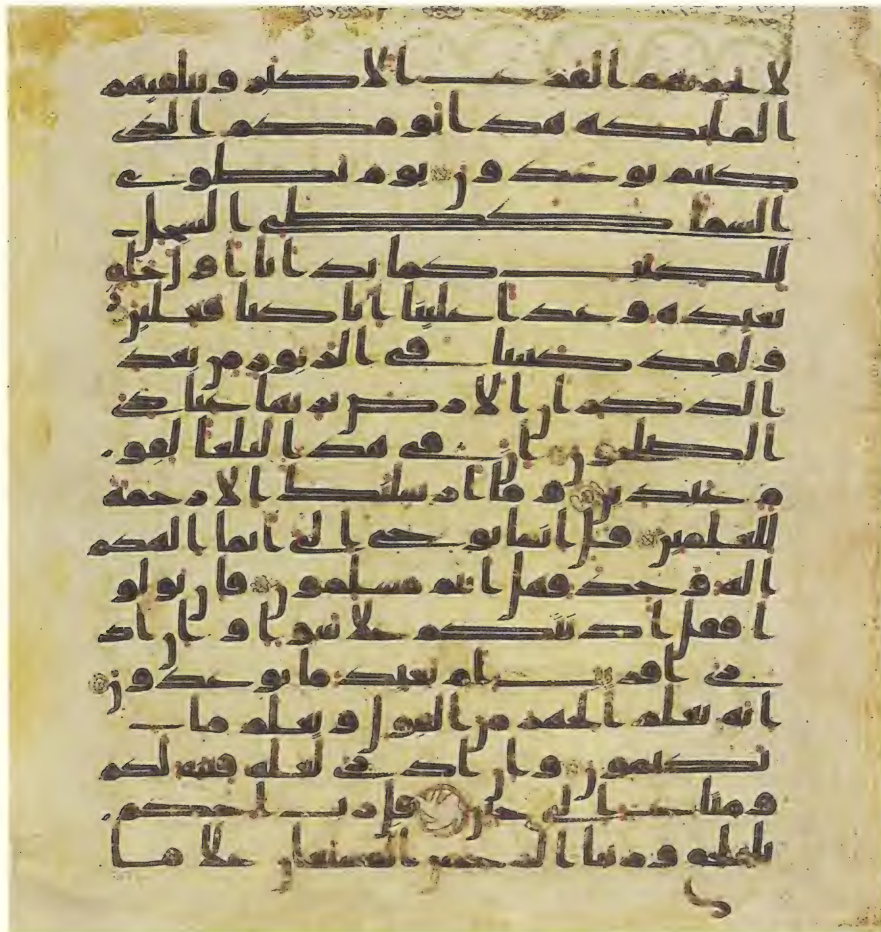 لا يحزنهم الفزع الاكبر وتتلقيهم
الملئكه هذا يومكم الذي
كنتم توعدون يوم نطوي
السما كطي السجل
للكتب كما بدانا اول خلق
نعيده وعدا علينا انا كنا فعلين
ولقد كتبنا في الزبور من بعد
الذكر ان الارض يرثها عبادي
الصلحون ان في هذا لبلغا لقو
م عبدين وما ارسلنك الا رحمة
للعلمين قل انما يوحى الي انما الهكم
اله وحد فهل انتم مسلمون فان تولو
ا فقل اذنتكم على سوا وان اد
ري اقريب ام بعيد ما توعدون
انه يعلم الجهر من القول ويعلم ما
تكتمون وان ادري لعله فتنه لكم
ومتع الى حين قل رب احكم
بالحق وربنا الرحمن المستعان على ما